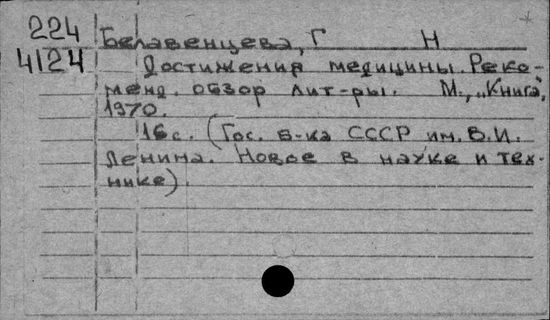 224
4124
Белавенцева, Г Н
Достижения медицины. Реко-
менд. обзор лит-ры. М., „Книга",
1970.
16с. (Гос. б-ка СССР им. В.И.
Ленина. Новое в науке и тех-
нике).